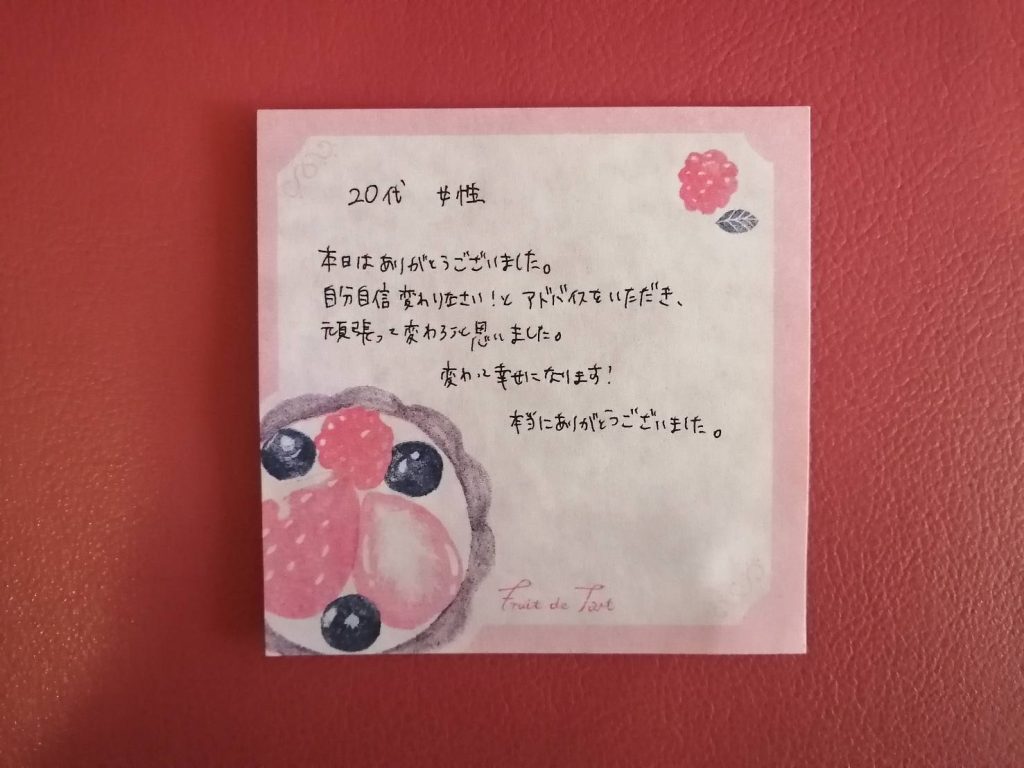 20代 女性
本日はありがとうございました。
自分自信変わりなさい!とアドバイスをいただき、
頑張って変わろうと思いました。
変わって幸せになります!
本当にありがとうございました。
Fruit de Tart